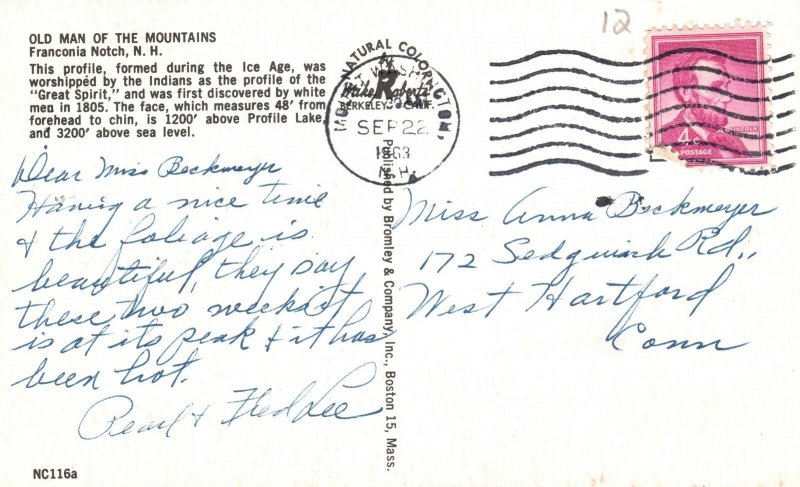 12
OLD MAN OF THE MOUNTAINS
Franconia Notch, N. H.
This profile, formed during the Ice Age, was
worshipped by the Indians as the profile of the
"Great Spirit," and was first discovered by white
men in 1805. The face, which measures 48' from
forehead to chin, is 1200' above Profile Lake,
and 3200' above sea level.
Dear Miss Beckmeyer
Having a nice time
& the foliage is
beautiful, they say
these two weeks it
is at its peak & it has
been hot.
Pearl &
NATURAL COLOR
by
Mike Roberts
BERKELEY CALIF.
WASHINGTON,
SEP 22
1963
N.H.
Published by Bromley & Company, Inc., Boston 15, Mass.
4¢
LINCOLN
POSTAGE
Miss Anna Beckmeyer
172 Sedgwick Rd.,
West Hartford
Conn
NC116a